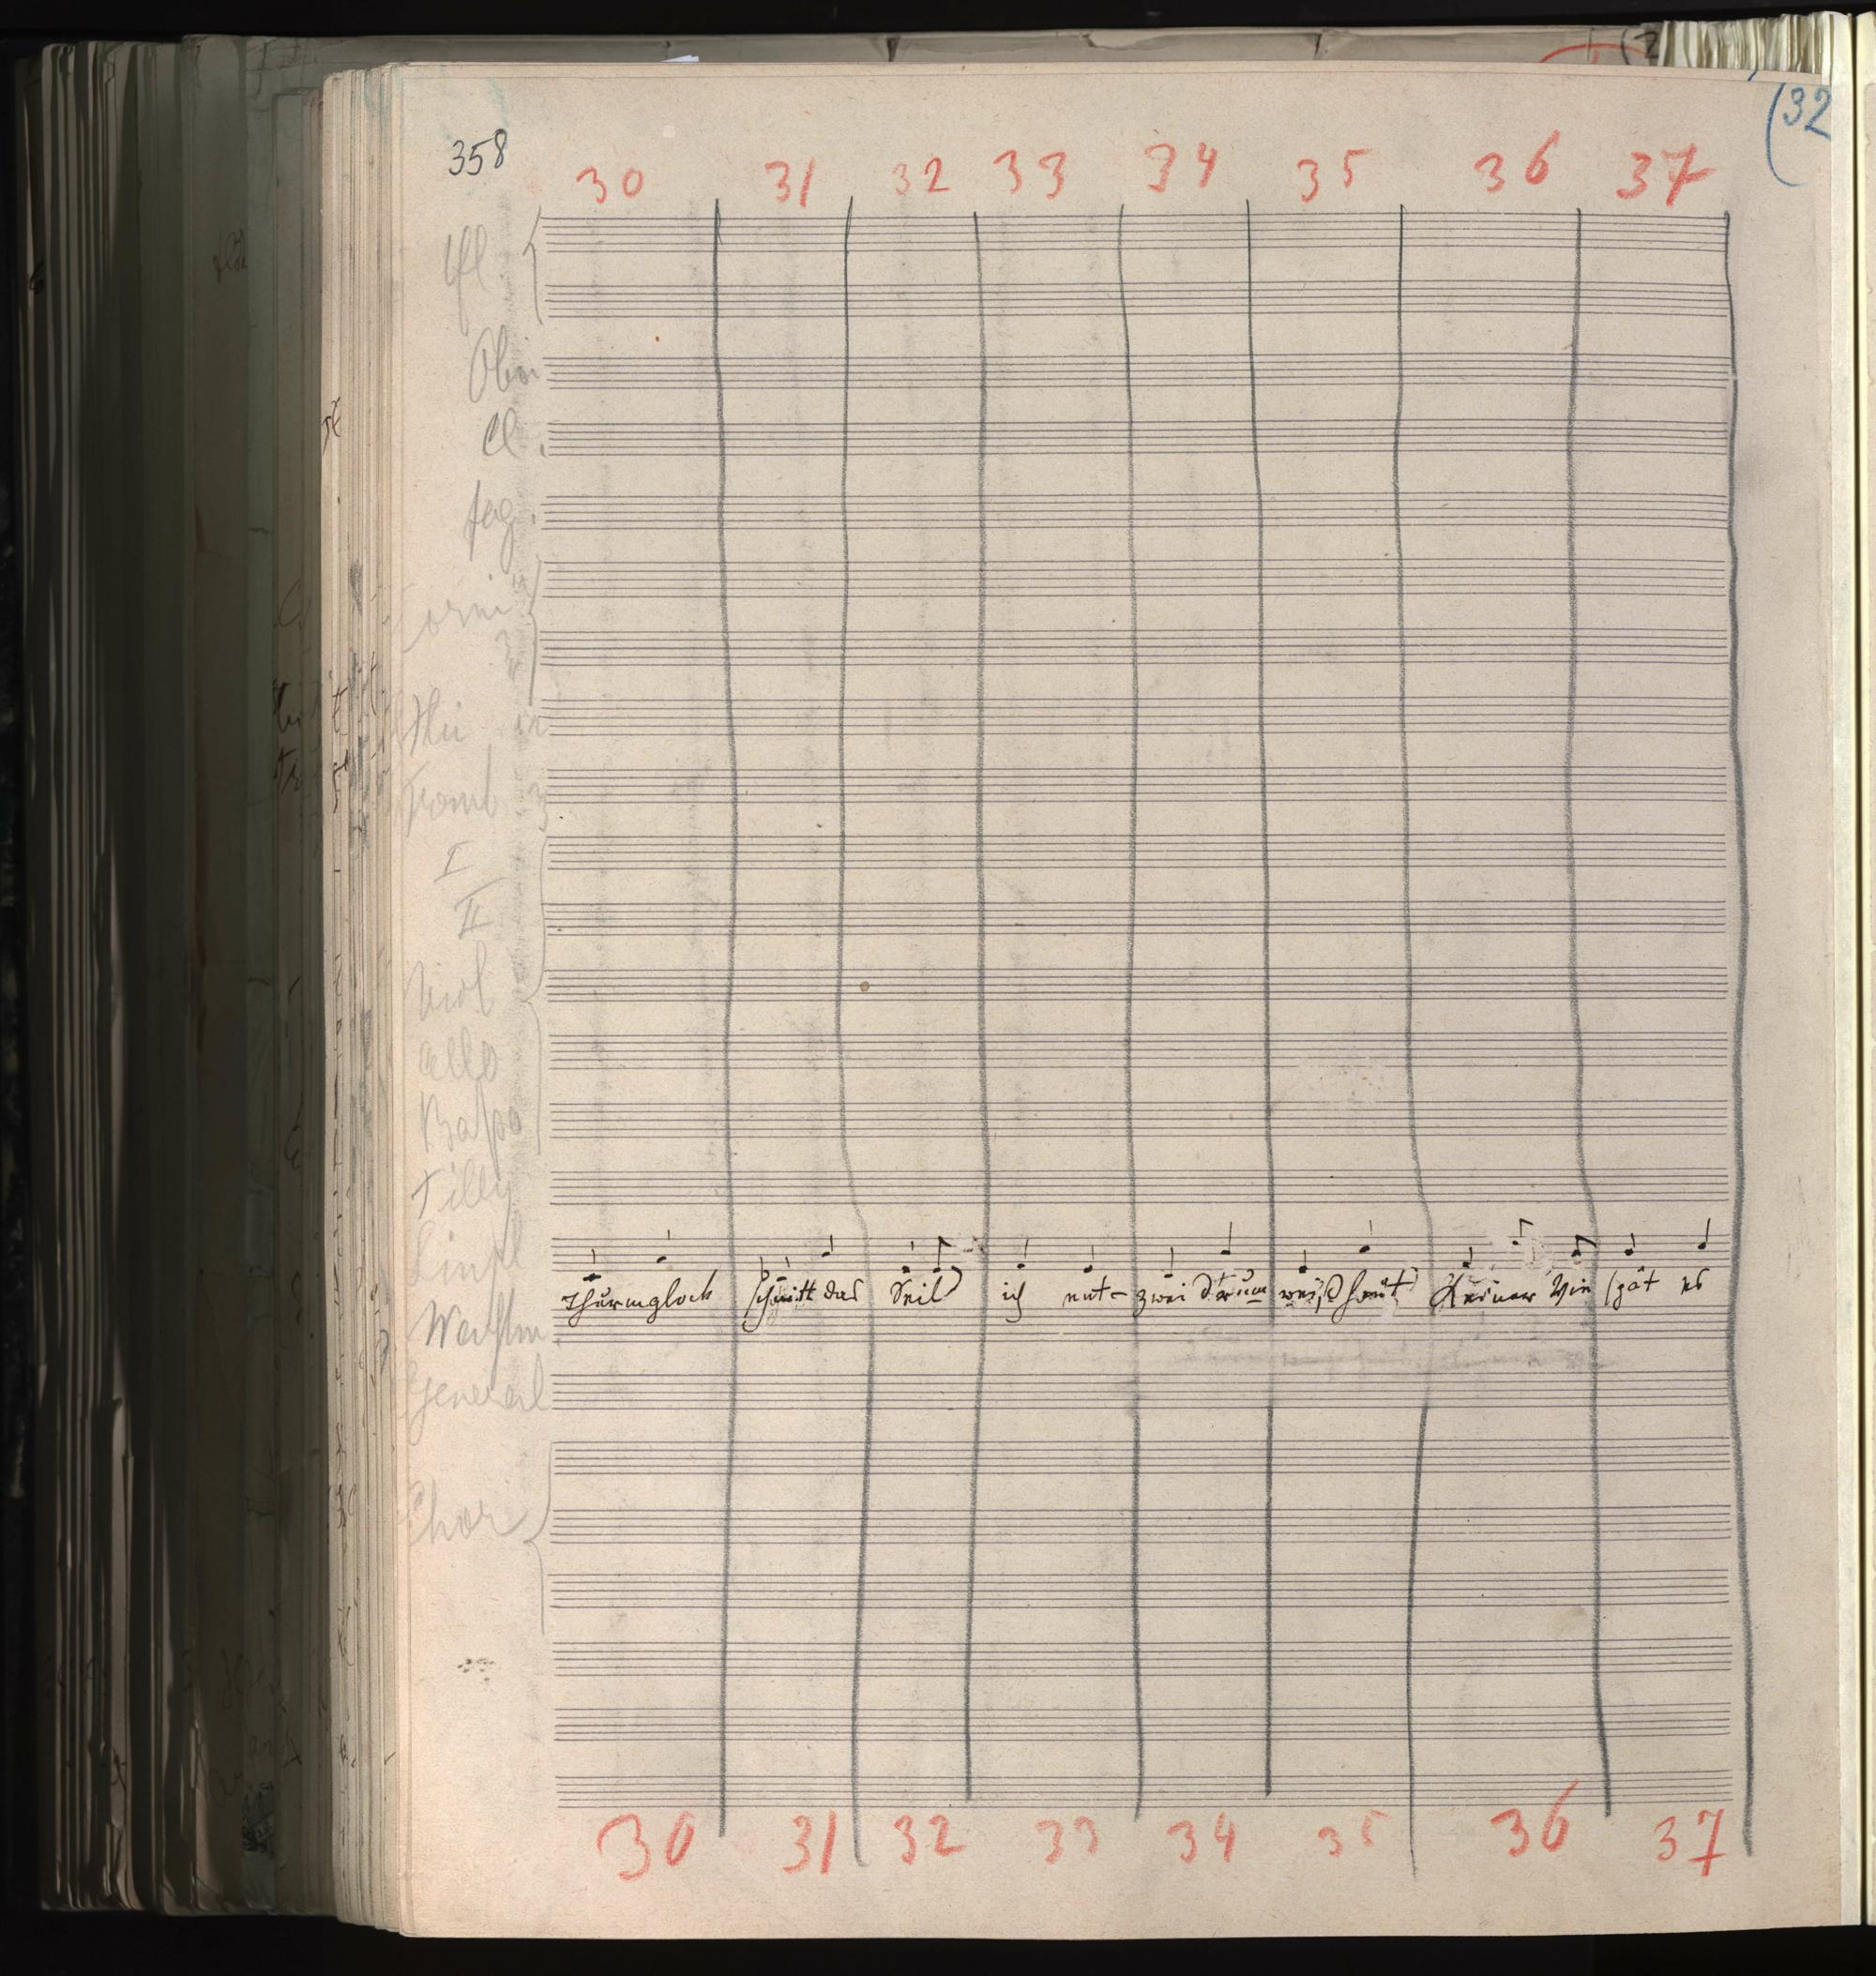 (32
358
30 31 32 33 34 35 36 37
Fl.
Oboi
Cl.
fag.
Corni
in
Tromb 3
I
II
Viol
Cello
Basso
Tilly
Wachtm.
Thurmglock schnitt das Seil ich ent- zwei Drum weiß heut Keiner Wie spät es
General
Chor
30 31 32 33 34 35 36 37